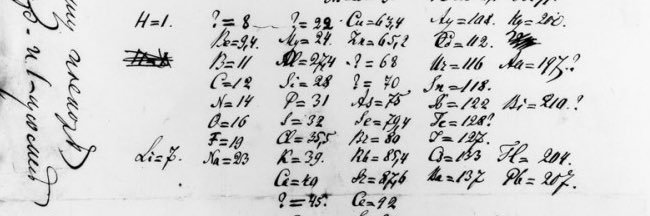 H=1. ?=8 ?=22 Cu=63,4 Ag=108. Hg=200.
Be=9,4 Mg=24. Zn=65,2 Cd=112.
B=11 Al=27,4 ?=68 Ur=116 Au=197?
C=12 Si=28 ?=70 Sn=118.
N=14 P=31 As=75 Sb=122 Bi=210?
O=16 S=32 Se=79,4 Te=128?
F=19 Cl=35,5 Br=80 J=127.
Li=7. Na=23 K=39. Rb=85,4 Cs=133 Tl=204.
Ca=40 Sr=87,6 Ba=137 Pb=207.
?=45. Ce=92